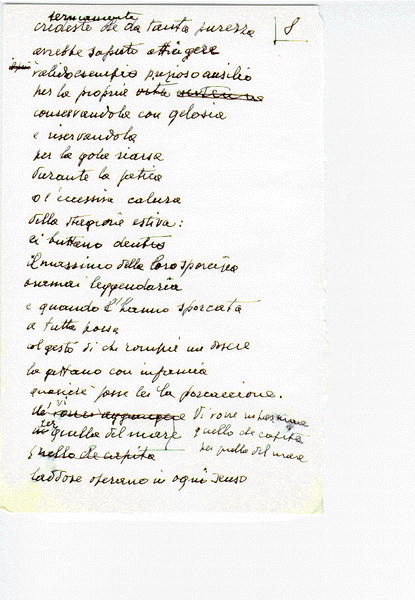 fermamente
8
credeste che da tanta purezza
avrebbe saputo attingere
valido esempio prezioso ausilio
per la propria vita
conservandola con gelosia
e riservandola
per la gola riarsa
durante la fatica
o l'eccessiva calura
della stagione estiva:
ci buttano dentro
il massimo della loro sporcizia
oramai leggendaria
e quando l'hanno sporcata
a tutta possa
col gesto di chi rompe un essere
la gettano con infamia
quasiché fosse lei la porcacciona.
quella del mare
quello che capita
quello che capita
per quella del mare
laddove operano in ogni senso